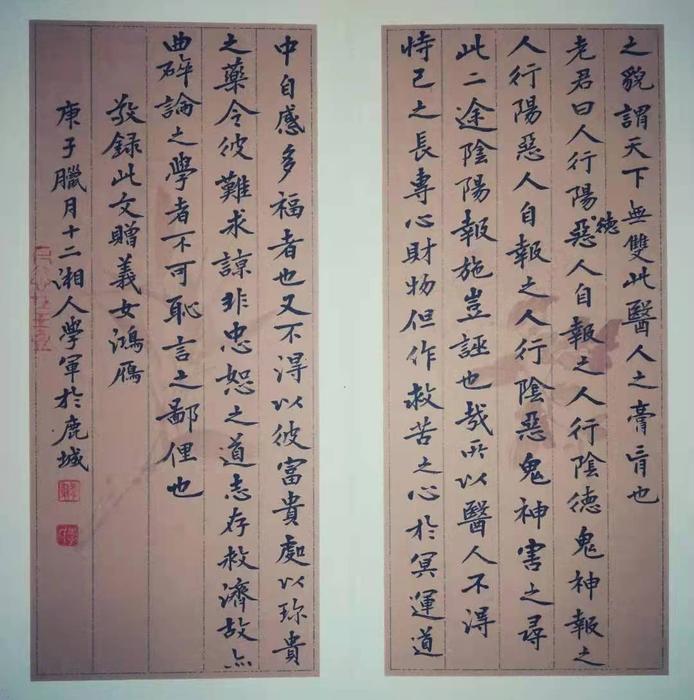 之貌謂天下無雙此醫人之膏肓也
老君曰人行陽惡人自報之人行陰德鬼神報之
德
人行陽惡人自報之人行陰惡鬼神害之尋
此二途陰陽報施豈誣也哉所以醫人不得
恃己之長專心財物但作救苦之心於冥運道
中自感多福者也又不得以彼富貴處以珍貴
之藥令彼難求諒非忠恕之道志存救濟故亦
曲碎論之學者不可恥言之鄙俚也
敬録此文贈義女鴻鴈
庚子臘月十二湘人學軍於鹿城